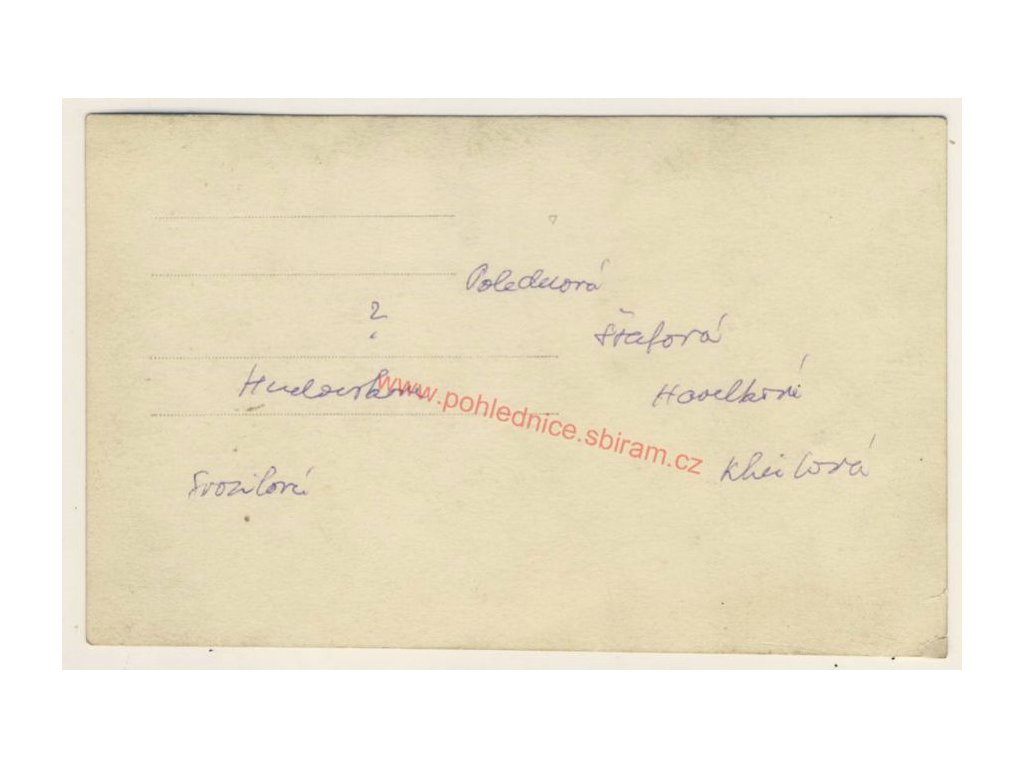 Polednová
?
Štafová
Havelková
www.pohlednice.sbiram.cz
Kheilová
Svozilová